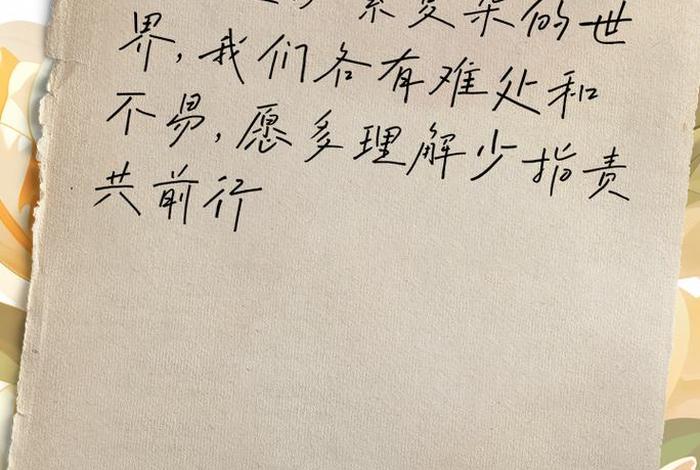 复杂的世
界,我们各有难处和
不易,愿多理解少指责
共前行